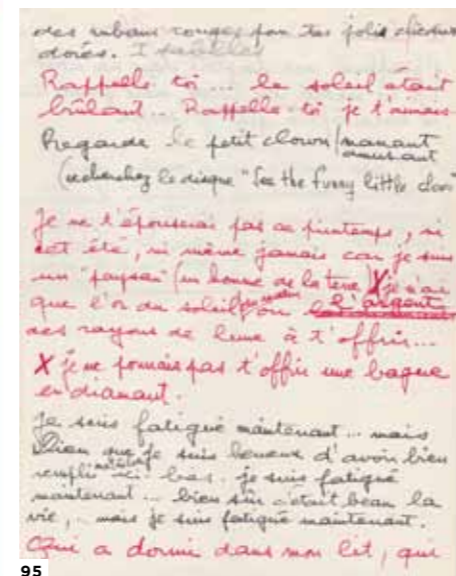 des rubans rouges pour tes jolis cheveux
dorés. Isabelle
Rappelle toi... le soleil était
brûlant... Rappelle-toi je t'aimais
Regarde le petit clown / marrant
amusant
(recherchez le disque "See the funny little clown"
Je ne t'épouserai pas ce printemps, ni
cet été, ni même jamais car je suis
un "paysan" (un homme de la terre) X je n'ai
que l'or du soleil ou l'argent
des rayons de lune à t'offrir...
X je ne pourrais pas t'offrir une bague
en diamant.
Je suis fatigué maintenant... mais
bien que je suis heureux d'avoir bien
rempli ici bas. je suis fatigué
maintenant... bien sûr c'était beau la
vie, mais je suis fatigué maintenant.
Qui a dormi dans mon lit, qui
95